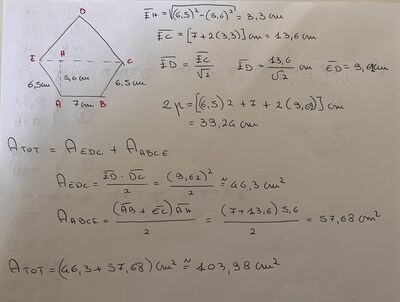 D
E H C
6,5cm 5,6cm 6,5cm
A 7cm B
EH = √(6,5)² - (5,6)² = 3,3 cm
EC = [7 + 2(3,3)] cm = 13,6 cm
ED = EC/√2 ED = 13,6/√2 cm ED = 9,62cm
2p = [(6,5)2 + 7 + 2(9,62)] cm
= 39,24 cm
ATOT = AEDC + AABCE
AEDC = ED · DC / 2 = (9,62)² / 2 ≅ 46,3 cm²
AABCE = (AB + EC) AH / 2 = (7 + 13,6) 5,6 / 2 = 57,68 cm²
ATOT = (46,3 + 57,68) cm² ≅ 103,98 cm²